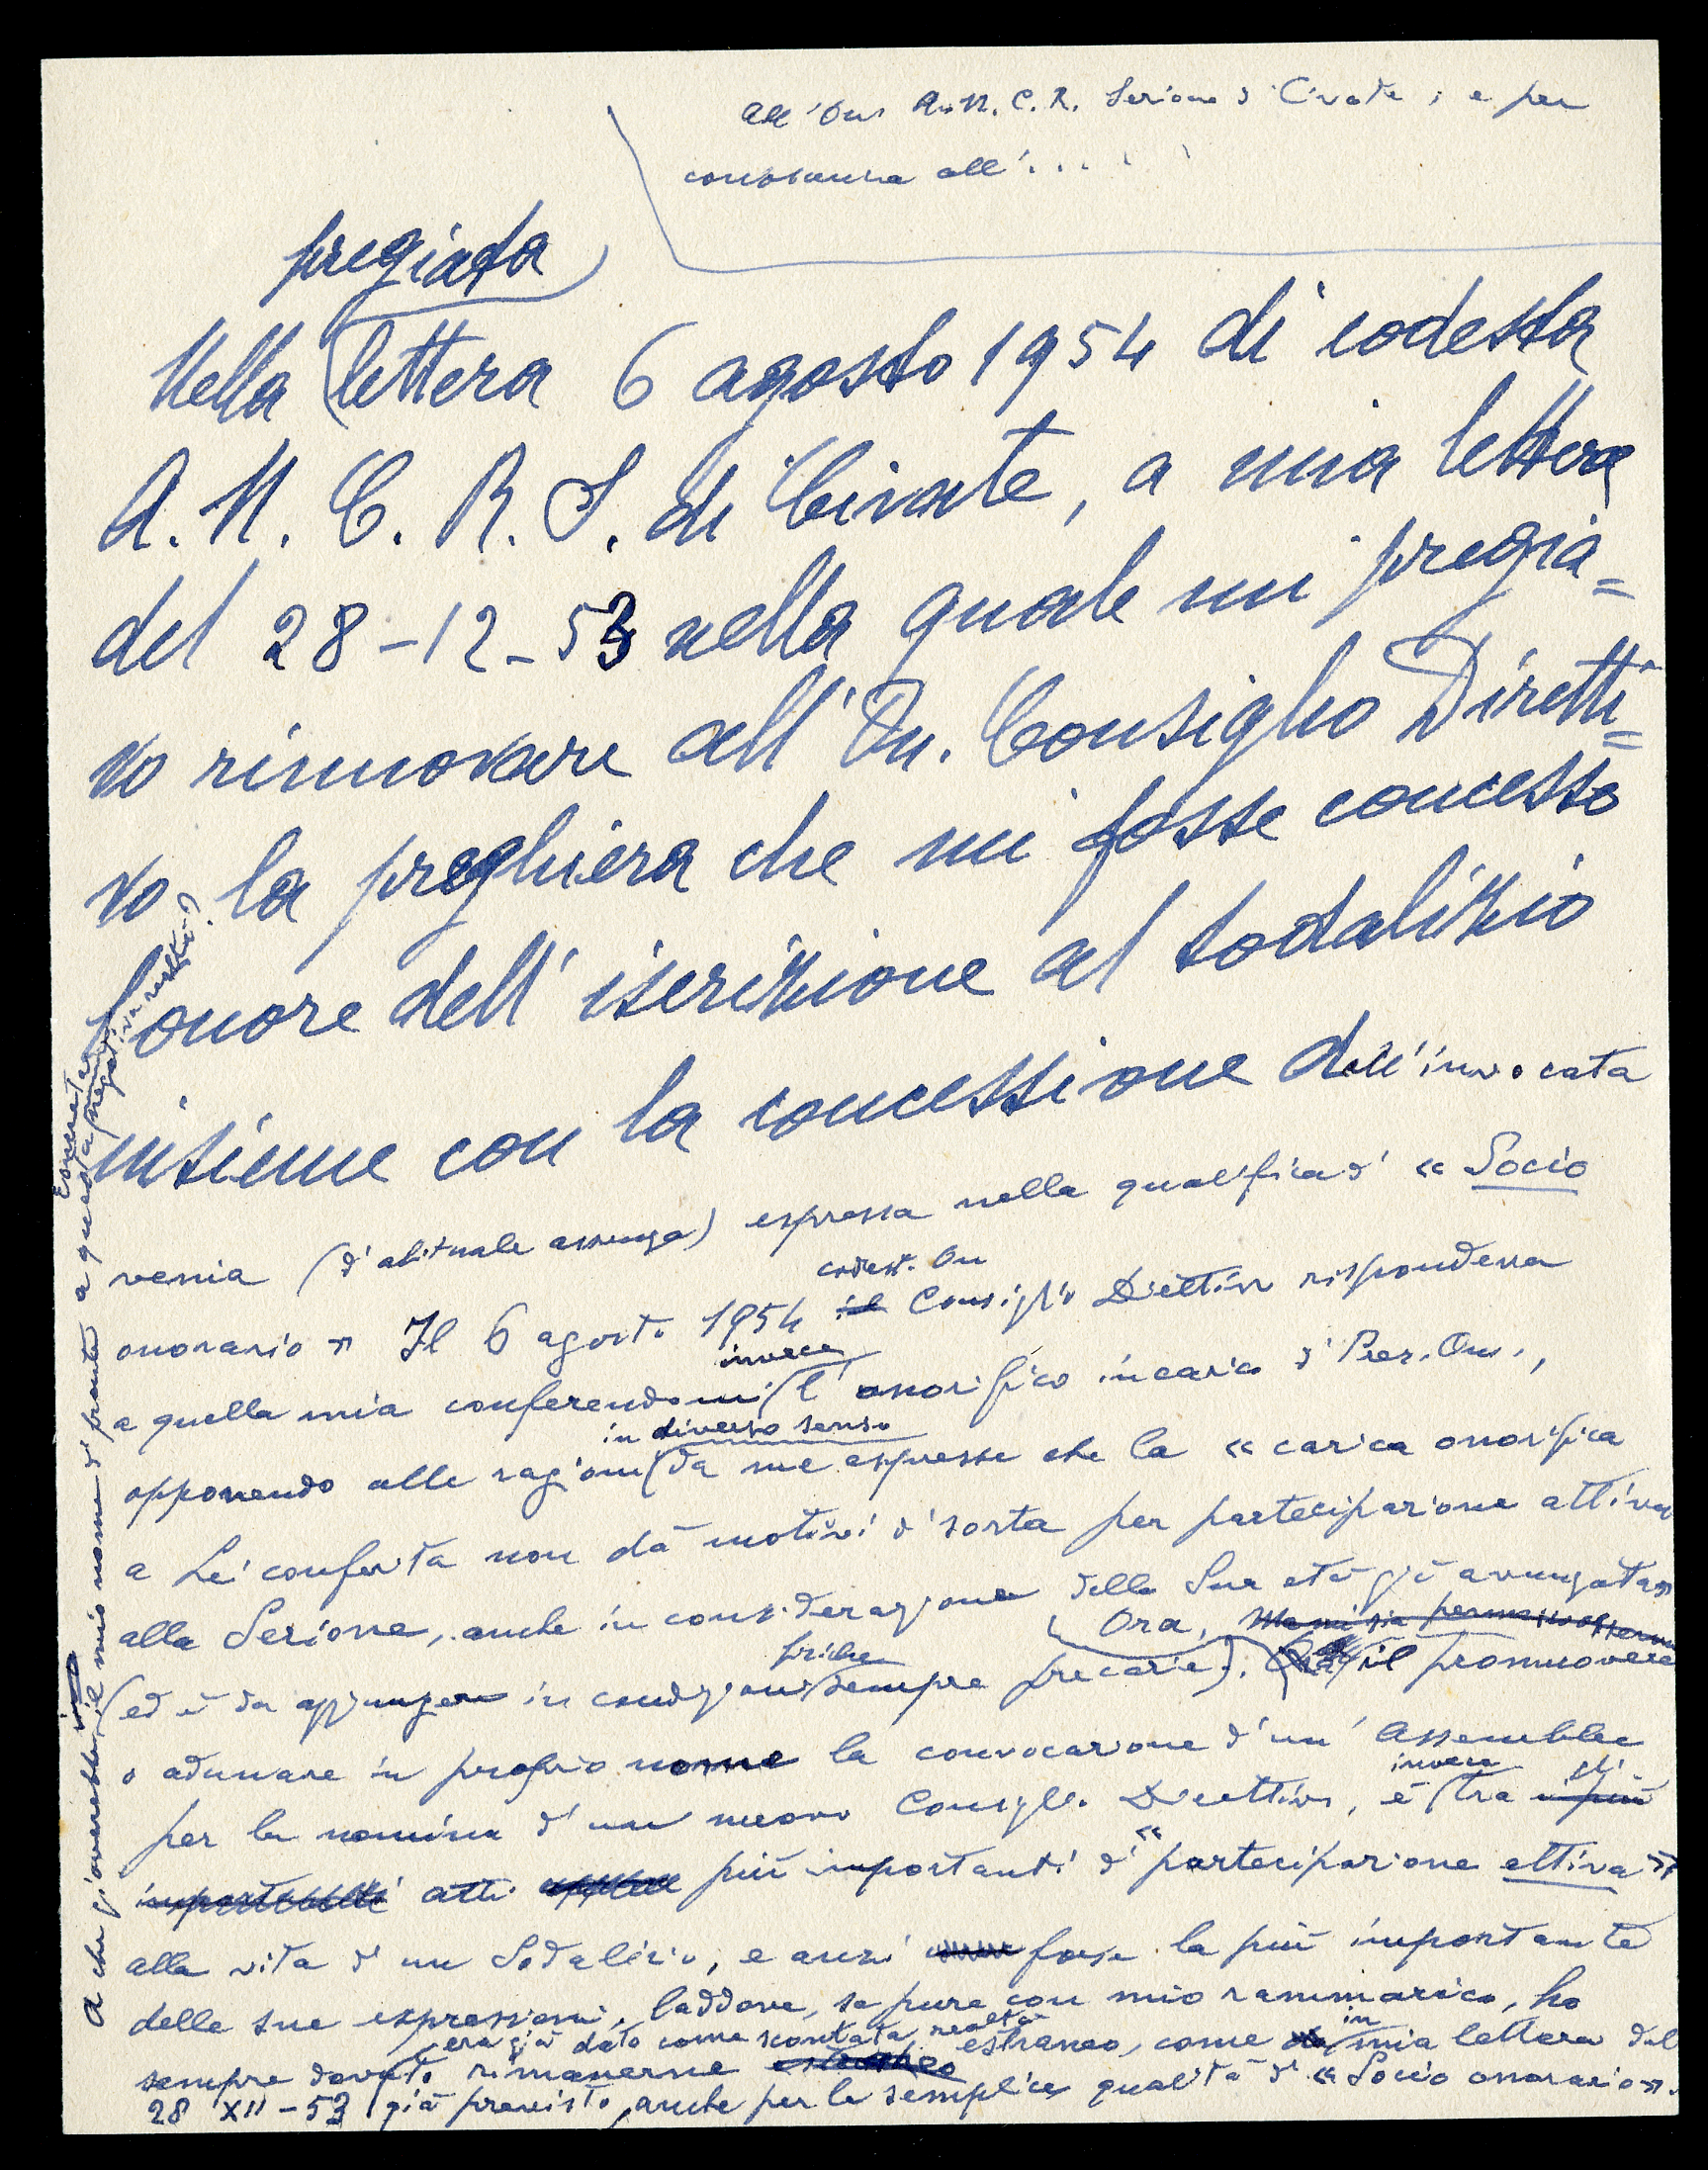 All'On. A. N. C. R. Sezione di Civate ; e per
conoscenza all'. . .
pregiata
Nella lettera 6 agosto 1954 di codesta
A. N. C. R. S. di Civate, a mia lettera
del 28-12-53 nella quale mi pregia=
vo rinnovare all'On. Consiglio Diretti=
vo la preghiera che mi fosse concesso
l'onore dell'iscrizione al sodalizio
insieme con la concessione dell'invocata
venia (d'abituale assenza) espressa nella qualifica di « Socio
codest. On
onorario » Il 6 agosto 1954 il Consiglio Direttivo rispondeva
invece
a quella mia conferendomi l'onorifico incarico di Pres. On.,
in diverso senso
opponendo alle ragioni da me espresse che la « carica onorifica
a Lei conferita non dà motivi di sorta per partecipazione attiva
alla Sezione, anche in considerazione della Sua età già avanzata»
Ora, Ma mi sia permesso
fisiche
(ed è da aggiungere in condizioni sempre precarie). il promuovere
o adunare in proprio nome la convocazione d'un'Assemblea
invece gli
per la nomina d'un nuovo Consiglio Direttivo, è tra i più
importanti atti più importanti di "partecipazione attiva»
alla vita d'un Sodalizio, e anzi forse la più importante
delle sue espressioni, laddove, se pure con mio rammarico, ho
era già dato come scontata realtà in
sempre dovuto rimanerne estraneo estraneo, come da mia lettera del
28 XII-53 già previsto, anche per la semplice qualità di « Socio onorario».
A che gioverebbe il mio nome di fronte a questa negativa realtà?